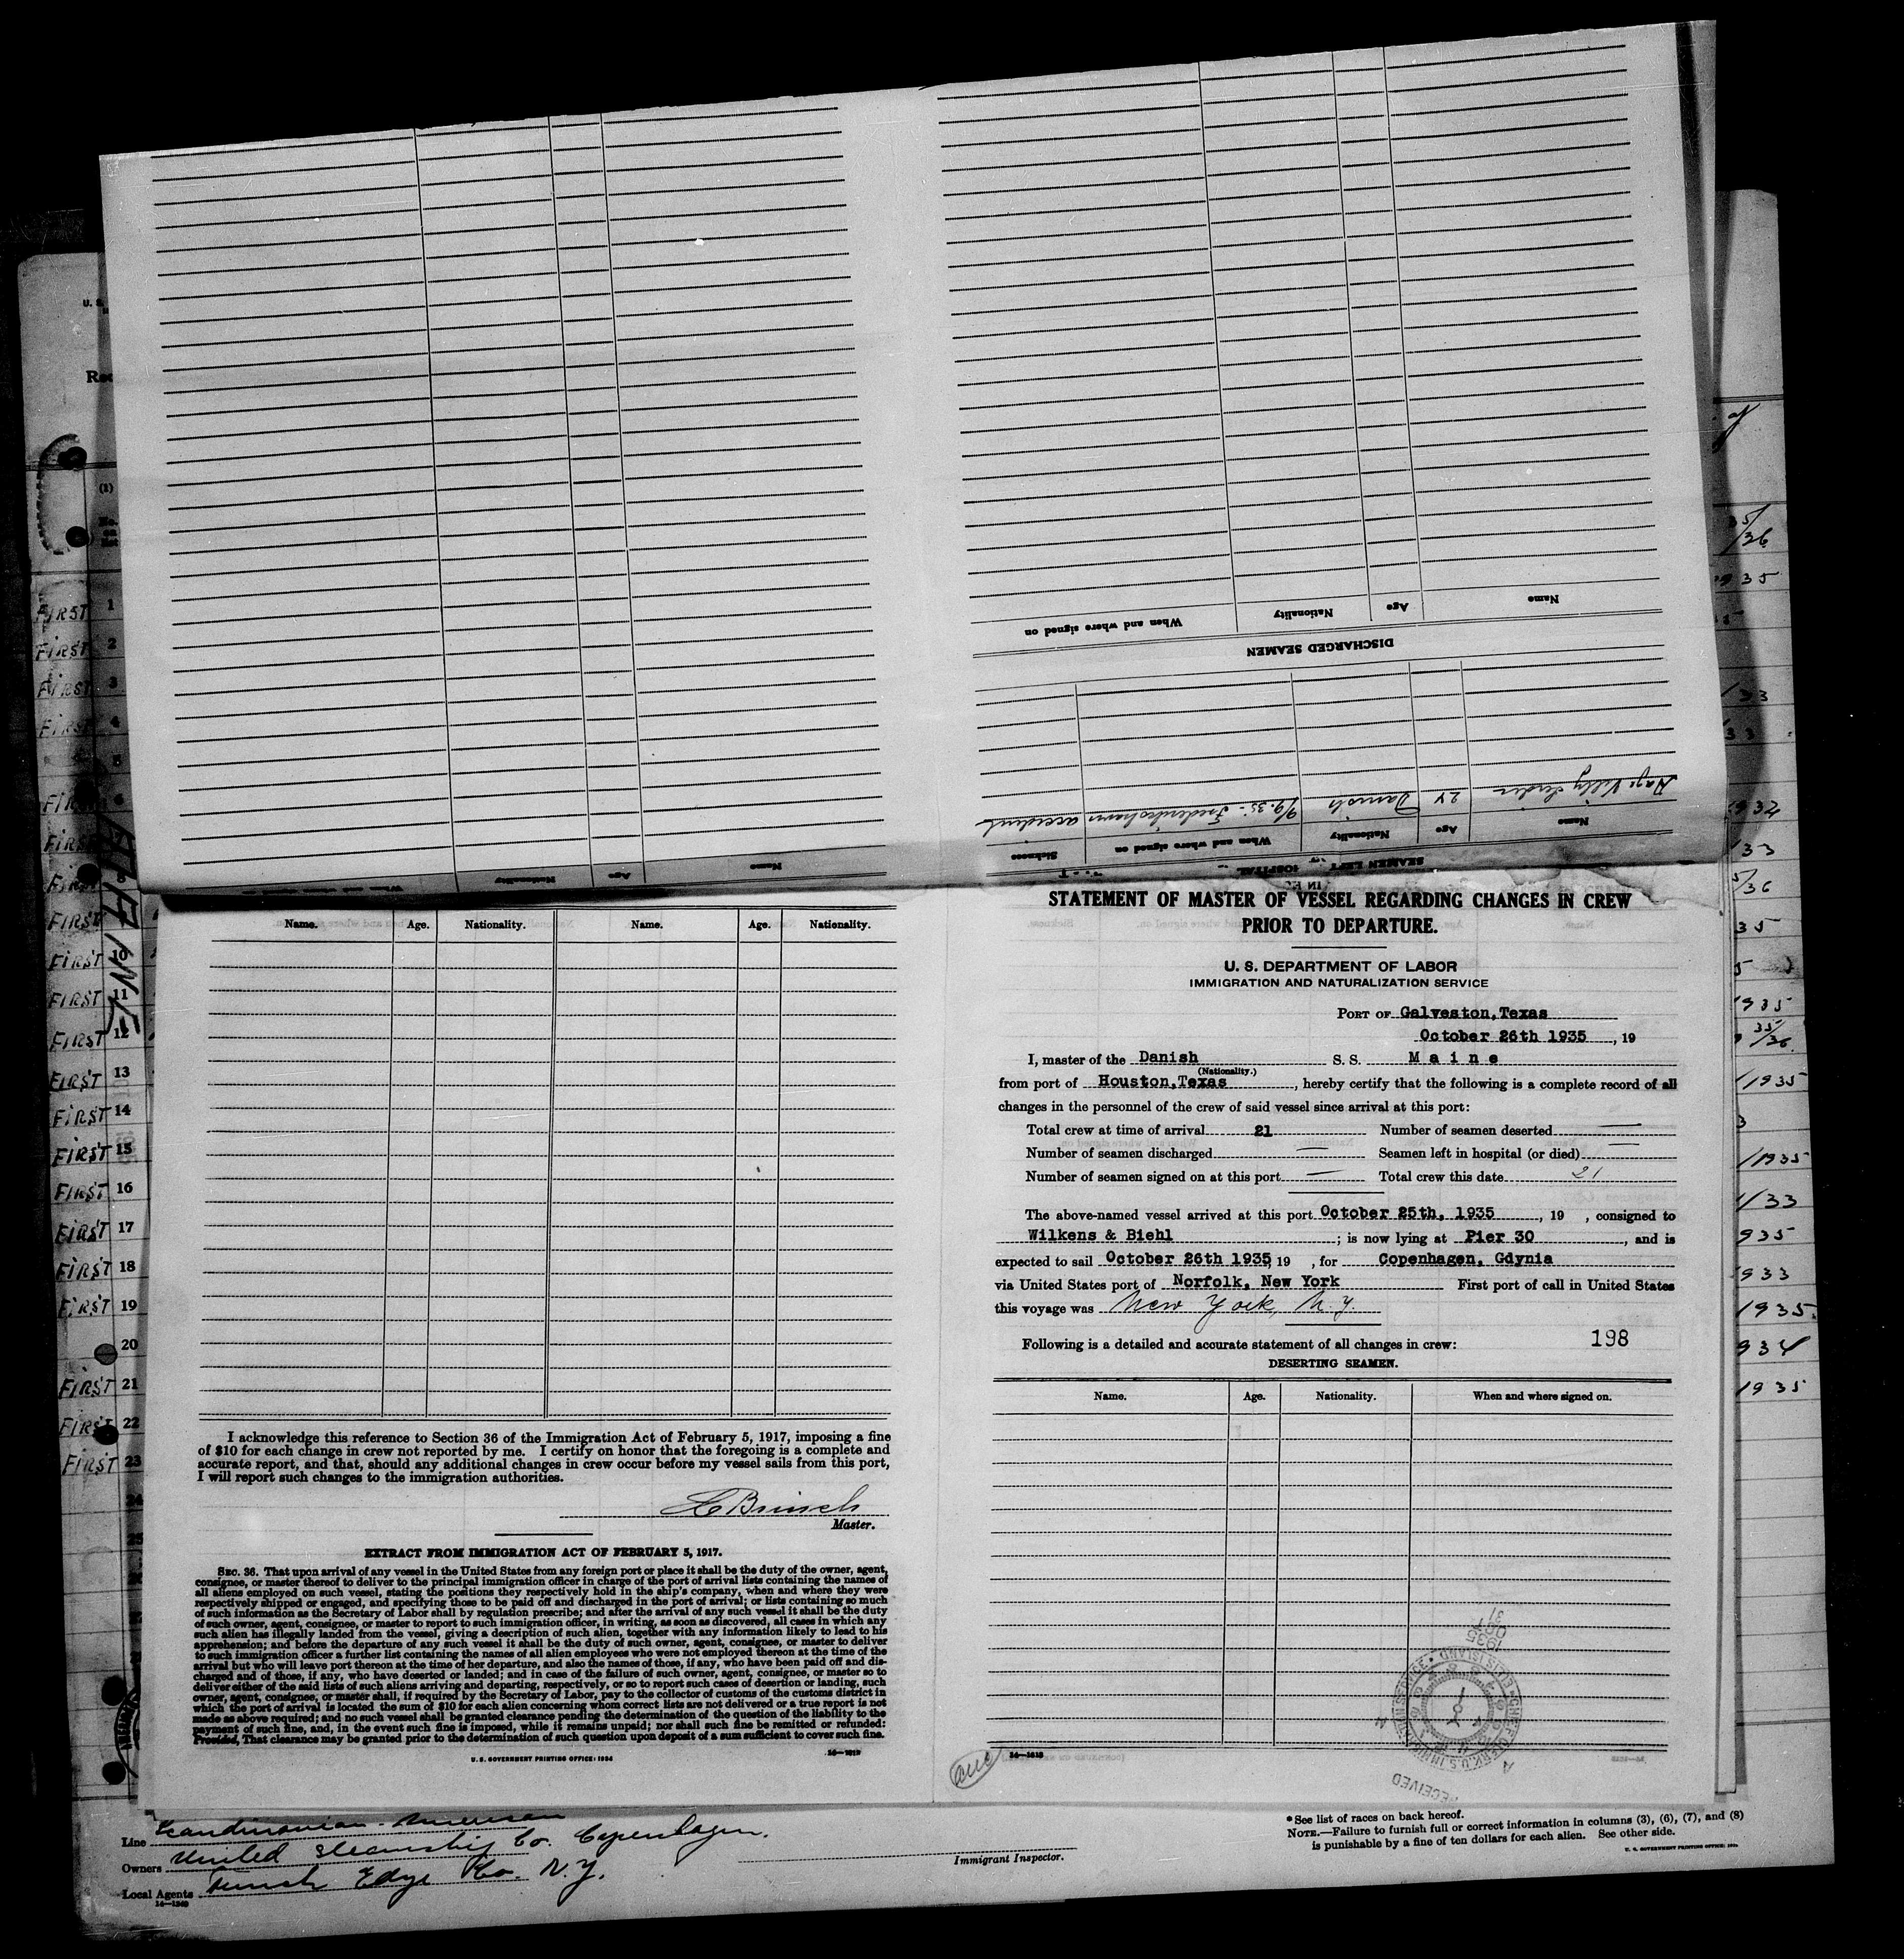 DISCHARGED SEAMEN
Name
Age
Nationality
When and where signed on
SEAMEN LEFT IN HOSPITAL
Name
Age
Nationality
When and where signed on
Sickness
24
Danish
9/9.35 - Frederikshavn
accident
Name
Age
Nationality
When and where signed on
STATEMENT OF MASTER OF VESSEL REGARDING CHANGES IN CREW
PRIOR TO DEPARTURE.
U. S. DEPARTMENT OF LABOR
IMMIGRATION AND NATURALIZATION SERVICE
PORT OF Galveston, Texas
October 26th 1935, 19
I, master of the Danish S. S. Maine
(Nationality.)
from port of Houston, Texas, hereby certify that the following is a complete record of all
changes in the personnel of the crew of said vessel since arrival at this port:
Total crew at time of arrival 21 Number of seamen deserted —
Number of seamen discharged — Seamen left in hospital (or died) —
Number of seamen signed on at this port — Total crew this date 21
The above-named vessel arrived at this port October 25th, 1935, 19 , consigned to
Wilkens & Biehl ; is now lying at Pier 30, and is
expected to sail October 26th 1935, 19 , for Copenhagen, Gdynia
via United States port of Norfolk, New York First port of call in United States
this voyage was New York, N. Y.
Following is a detailed and accurate statement of all changes in crew:
198
DESERTING SEAMEN.
Name. Age. Nationality. When and where signed on.
14—1613
RECEIVED
1935 OCT 31
Name. Age. Nationality. Name. Age. Nationality.
I acknowledge this reference to Section 36 of the Immigration Act of February 5, 1917, imposing a fine
of $10 for each change in crew not reported by me. I certify on honor that the foregoing is a complete and
accurate report, and that, should any additional changes in crew occur before my vessel sails from this port,
I will report such changes to the immigration authorities.
Master.
EXTRACT FROM IMMIGRATION ACT OF FEBRUARY 5, 1917.
SEC. 36. That upon arrival of any vessel in the United States from any foreign port or place it shall be the duty of the owner, agent,
consignee, or master thereof to deliver to the principal immigration officer in charge of the port of arrival lists containing the names of
all aliens employed on such vessel, stating the positions they respectively hold in the ship's company, when and where they were
respectively shipped or engaged, and specifying those to be paid off and discharged in the port of arrival; or lists containing so much
of such information as the Secretary of Labor shall by regulation prescribe; and after the arrival of any such vessel it shall be the duty
of such owner, agent, consignee, or master to report to such immigration officer, in writing, as soon as discovered, all cases in which any
such alien has illegally landed from the vessel, giving a description of such alien, together with any information likely to lead to his
apprehension; and before the departure of any such vessel it shall be the duty of such owner, agent, consignee, or master to deliver
to such immigration officer a further list containing the names of all alien employees who were not employed thereon at the time of the
arrival but who will leave port thereon at the time of her departure, and also the names of those, if any, who have been paid off and dis-
charged and of those, if any, who have deserted or landed; and in case of the failure of such owner, agent, consignee, or master so to
deliver either of the said lists of such aliens arriving and departing, respectively, or so to report such cases of desertion or landing, such
owner, agent, consignee, or master shall, if required by the Secretary of Labor, pay to the collector of customs of the customs district in
which the port of arrival is located the sum of $10 for each alien concerning whom correct lists are not delivered or a true report is not
made as above required; and no such vessel shall be granted clearance pending the determination of the question of the liability to the
payment of such fine, and, in the event such fine is imposed, while it remains unpaid; nor shall such fine be remitted or refunded:
Provided, That clearance may be granted prior to the determination of such question upon deposit of a sum sufficient to cover such fine.
U. S. GOVERNMENT PRINTING OFFICE: 1934
14—1613
(1)
FIRST 1
FIRST 2
FIRST 3
FIRST 4
5
FIRST 6
FIRST
FIRST
FIRST
FIRST 10
FIRST 11
FIRST 12
FIRST 13
FIRST 14
FIRST 15
FIRST 16
FIRST 17
FIRST 18
FIRST 19
20
FIRST 21
FIRST 22
FIRST 23
24
25
Line Scandinavian-American
Owners United Steamship Co. Copenhagen.
Local Agents Funch Edye Co. N.Y.
14—1240
Immigrant Inspector.
*See list of races on back hereof.
NOTE.—Failure to furnish full or correct information in columns (3), (6), (7), and (8)
is punishable by a fine of ten dollars for each alien. See other side.